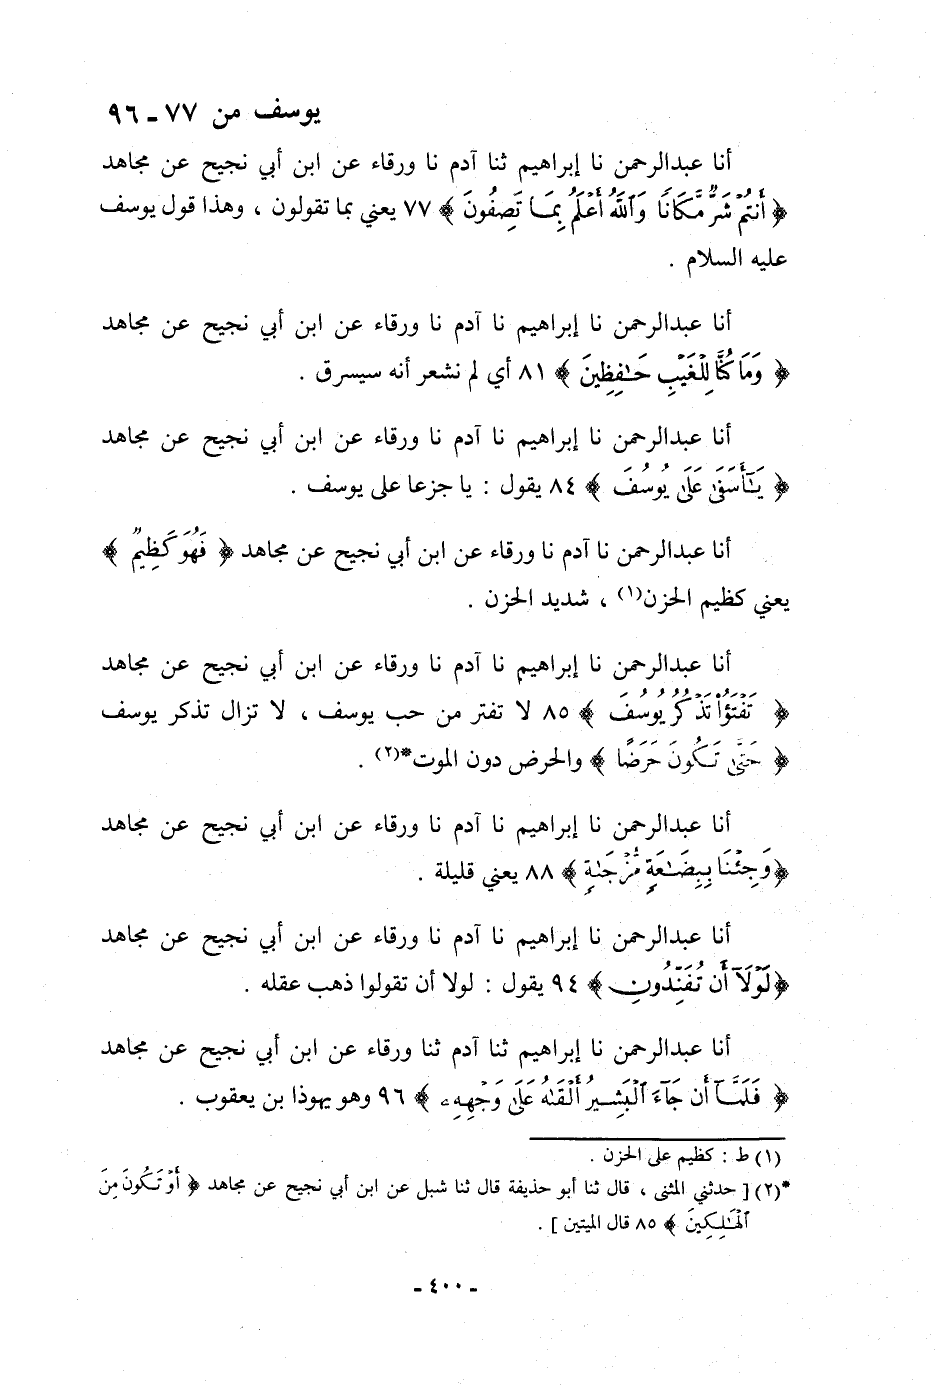 يوسف من ٧٧ ـ ٩٦
أنا عبدالرحمن نا إبراهيم ثنا آدم نا ورقاء عن ابن أبي نجيح عن مجاهد
﴿ أَنتُمْ شَرٌّ مَّكَانًا وَٱللَّهُ أَعْلَمُ بِمَا تَصِفُونَ ﴾ ٧٧ يعني بما تقولون ، وهذا قول يوسف
عليه السلام .
أنا عبدالرحمن نا إبراهيم نا آدم نا ورقاء عن ابن أبي نجيح عن مجاهد
﴿ وَمَا كُنَّا لِلْغَيْبِ حَـٰفِظِينَ ﴾ ٨١ أي لم نشعر أنه سيسرق .
أنا عبدالرحمن نا إبراهيم نا آدم نا ورقاء عن ابن أبي نجيح عن مجاهد
﴿ يَـٰٓأَسَفَىٰ عَلَىٰ يُوسُفَ ﴾ ٨٤ يقول : يا جزعا على يوسف .
أنا عبدالرحمن نا آدم نا ورقاء عن ابن أبي نجيح عن مجاهد ﴿ فَهُوَ كَظِيمٌ ﴾
يعني كظيم الحزن(١) ، شديد الحزن .
أنا عبدالرحمن نا إبراهيم نا آدم نا ورقاء عن ابن أبي نجيح عن مجاهد
﴿ تَفْتَؤُاْ تَذْكُرُ يُوسُفَ ﴾ ٨٥ لا تفتر من حب يوسف ، لا تزال تذكر يوسف
﴿ حَتَّىٰ تَكُونَ حَرَضًا ﴾ والحرض دون الموت*(٢) .
أنا عبدالرحمن نا إبراهيم نا آدم نا ورقاء عن ابن أبي نجيح عن مجاهد
﴿ وَجِئْنَا بِبِضَـٰعَةٍ مُّزْجَىٰةٍ ﴾ ٨٨ يعني قليلة .
أنا عبدالرحمن نا إبراهيم نا آدم نا ورقاء عن ابن أبي نجيح عن مجاهد
﴿ لَوْلَآ أَن تُفَنِّدُونِ ﴾ ٩٤ يقول : لولا أن تقولوا ذهب عقله .
أنا عبدالرحمن نا إبراهيم ثنا آدم ثنا ورقاء عن ابن أبي نجيح عن مجاهد
﴿ فَلَمَّآ أَن جَآءَ ٱلْبَشِيرُ أَلْقَىٰهُ عَلَىٰ وَجْهِهِۦ ﴾ ٩٦ وهو يهوذا بن يعقوب .
(١) ط : كظيم على الحزن .
*(٢) [ حدثني المثنى ، قال ثنا أبو حذيفة قال ثنا شبل عن ابن أبي نجيح عن مجاهد ﴿ أَوْ تَكُونَ مِنَ
ٱلْهَـٰلِكِينَ ﴾ ٨٥ قال الميتين ] .
ـ ٤٠٠ ـ